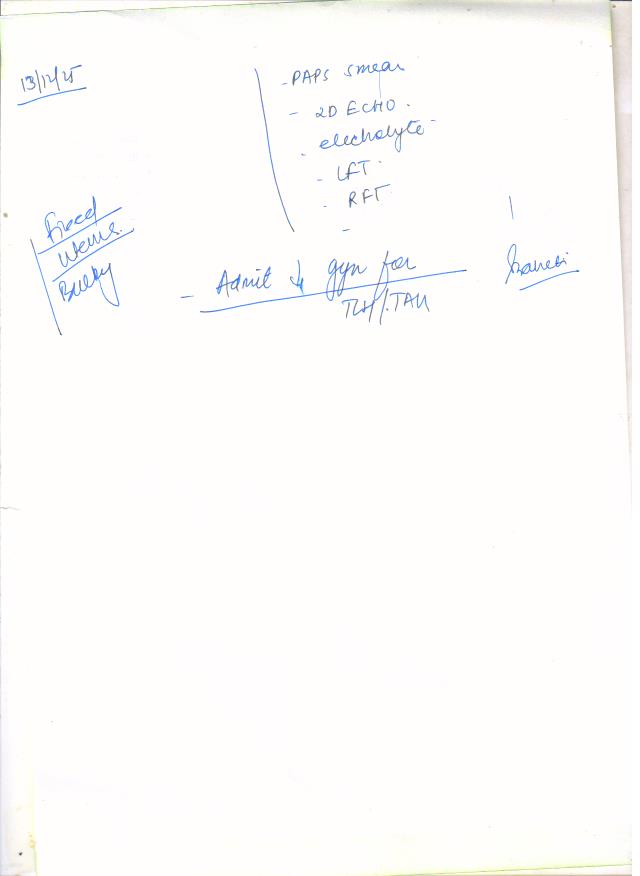 13/12/25
- PAPS smear
- 2D ECHO.
- electrolyte -
- LFT.
- RFT.
-
Fixed
Uterus.
Bulky
- Admit ↓ gyn for
TLH/TAH